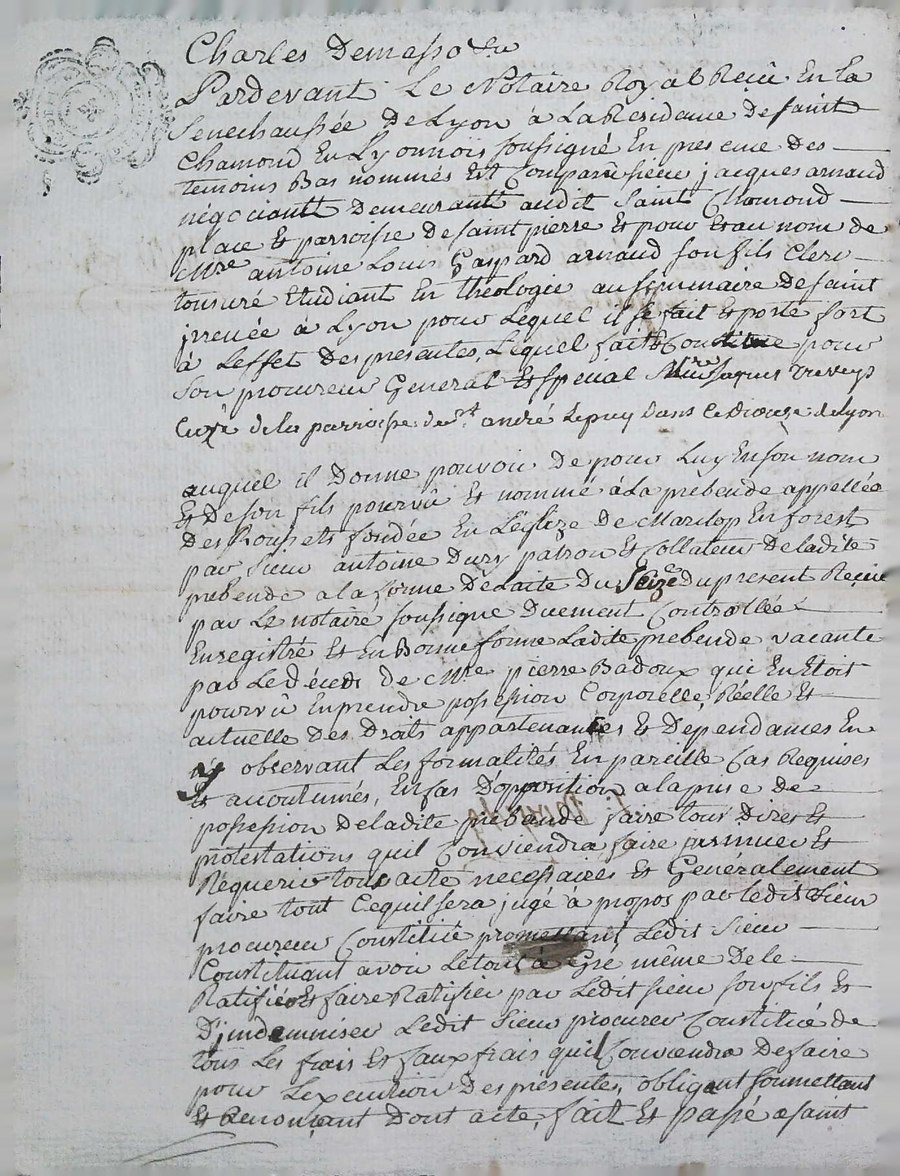 Charles Demasso
Pardevant Le Notaire Royal Reçû En La
Senechaussée De Lyon à La Residance De saint
Chamond En Lyonnois soussigné En presence des
temoins Bas nommés Est Comparu sieur jacques arnaud
négociantt Demeurantt audit Saint Chamond
place Et parroisse De saint pierre Et pour Et au nom de
Mre antoine Louis Gaspard arnaud son fils Clerc
tonsuré Etudiant En théologie au seminaire De saint
jrenée à Lyon pour Lequel il se fait Et porte fort
à Leffet Des presentes, Lequel fait Et Constitue pour
Son procureur General Et special Mre Jaques
Curé de la parroisse de st. andré Le puy dans le dioceze de Lyon
auquel il Donne pouvoir De pour Luy En son nom
Et De son fils pourvû Et nommé à La prébende appellée
Des Rousets fondée En L'églize De Marclop En forest
par sieur antoine Dury patron Et Collateur De ladite
prebende a la forme De Lacte Du Seize Du present Reçue
par Le notaire soussigné Duement Controllée
Enregistré Et En Bonne forme Ladite prebende vacante
par Le Décéds de Mre pierre Badoux qui En Etoit
pourvû En prendre possession Corporelle, Réelle Et
actuelle Des Droits appartenantes Et Dependances En
y observant Les formalités En pareille Cas Requises
Et acoutumés, En Cas D'opposition a la prise de
possession De ladite prébande faire tous Dires Et
protestations quil Conviendra, faire jnsinuer Et
Réquerir tous acte necessaires Et Généralement
faire tout Cequil sera jugé à propos par Ledit Sieur
procureur Constitué promettant Ledit Sieur
Constituant avoir Le tout à Gré même De le
Ratifier Et faire Ratifier par Ledit sieur son fils Et
D'jndemniser Ledit Sieur procureur Constitué de
tous Les frais Et faux frais quil Conviendra De faire
pour L'execution Des présentes, obligant soumettant
Et Renonçant Dont acte, fait Et passé a saint